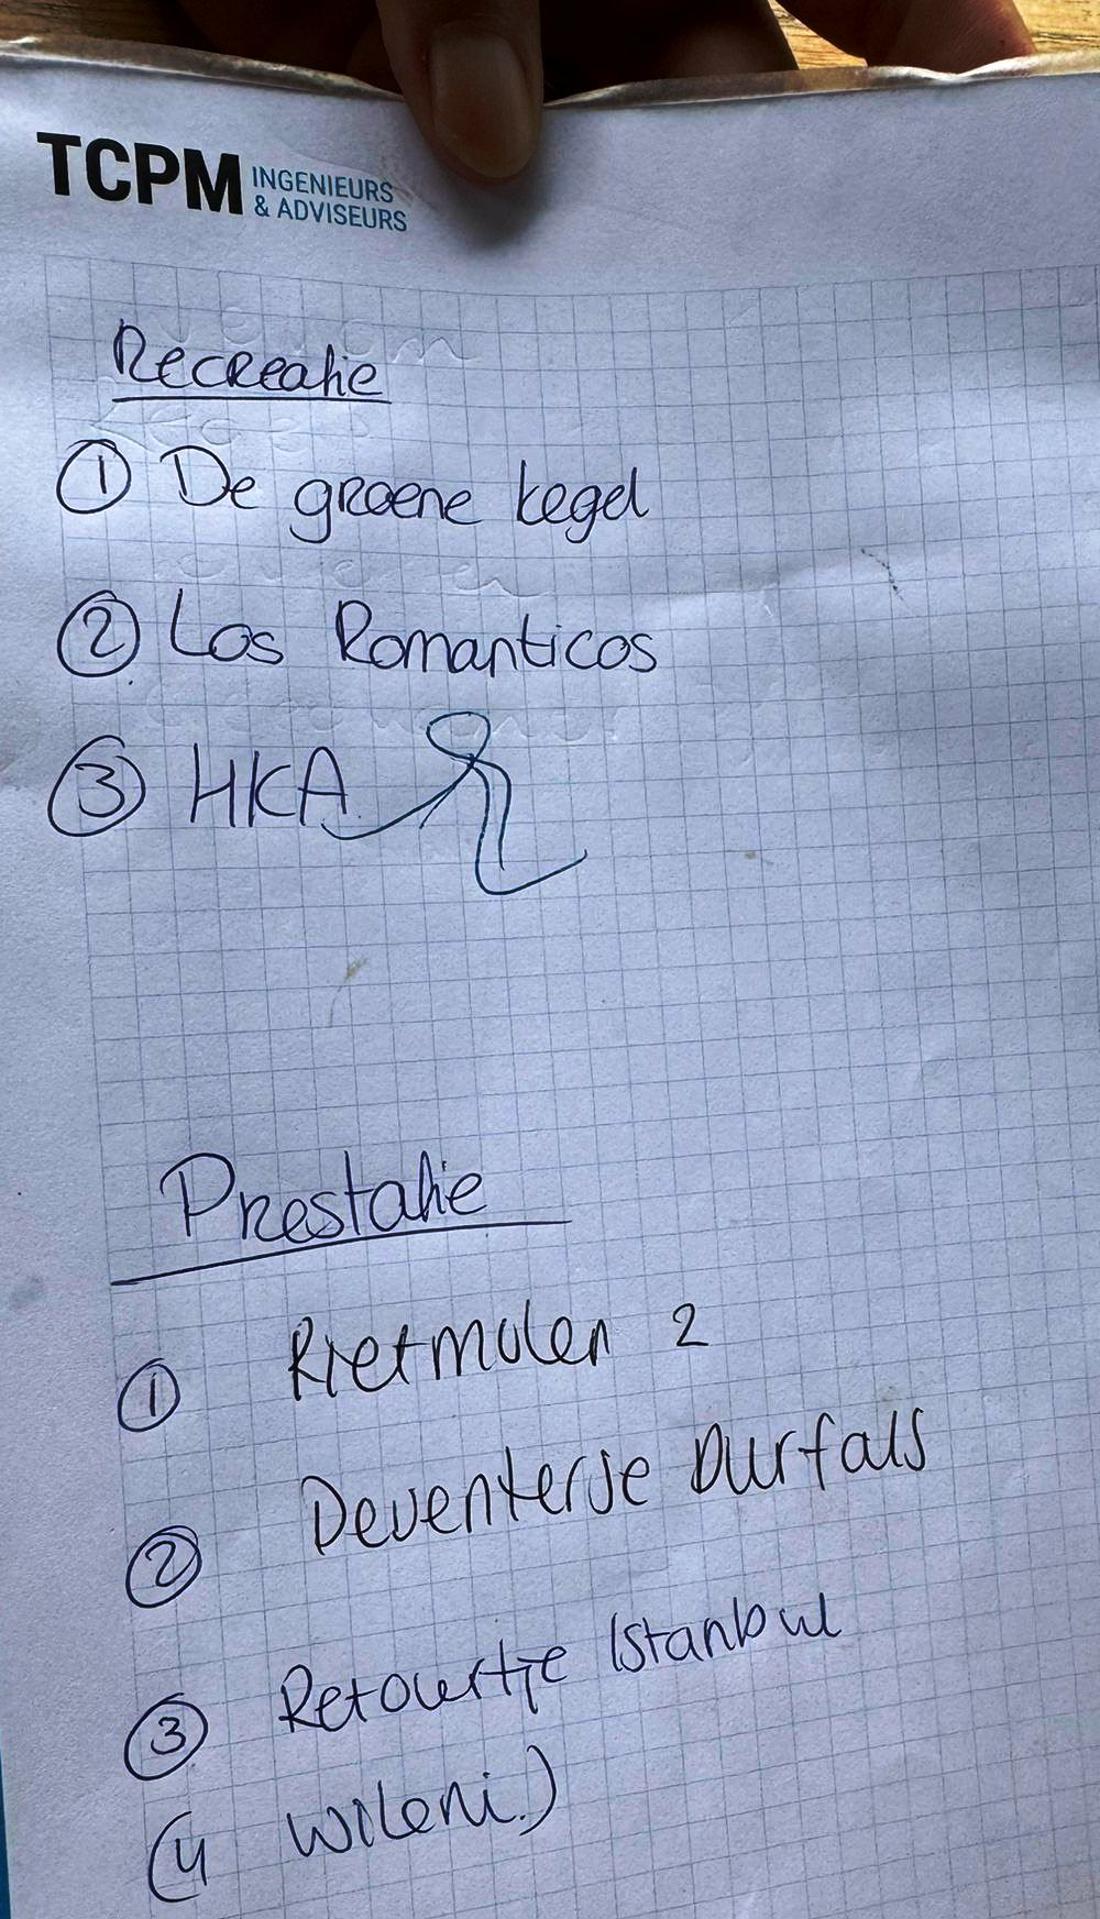 TCPM INGENIEURS
& ADVISEURS
Recreatie
① De groene kegel
② Los Romanticos
③ HKA
Prestatie
① Rietmolen 2
② Deventerse Durfals
③ Retourtje Istanbul
(4 Wileni.)